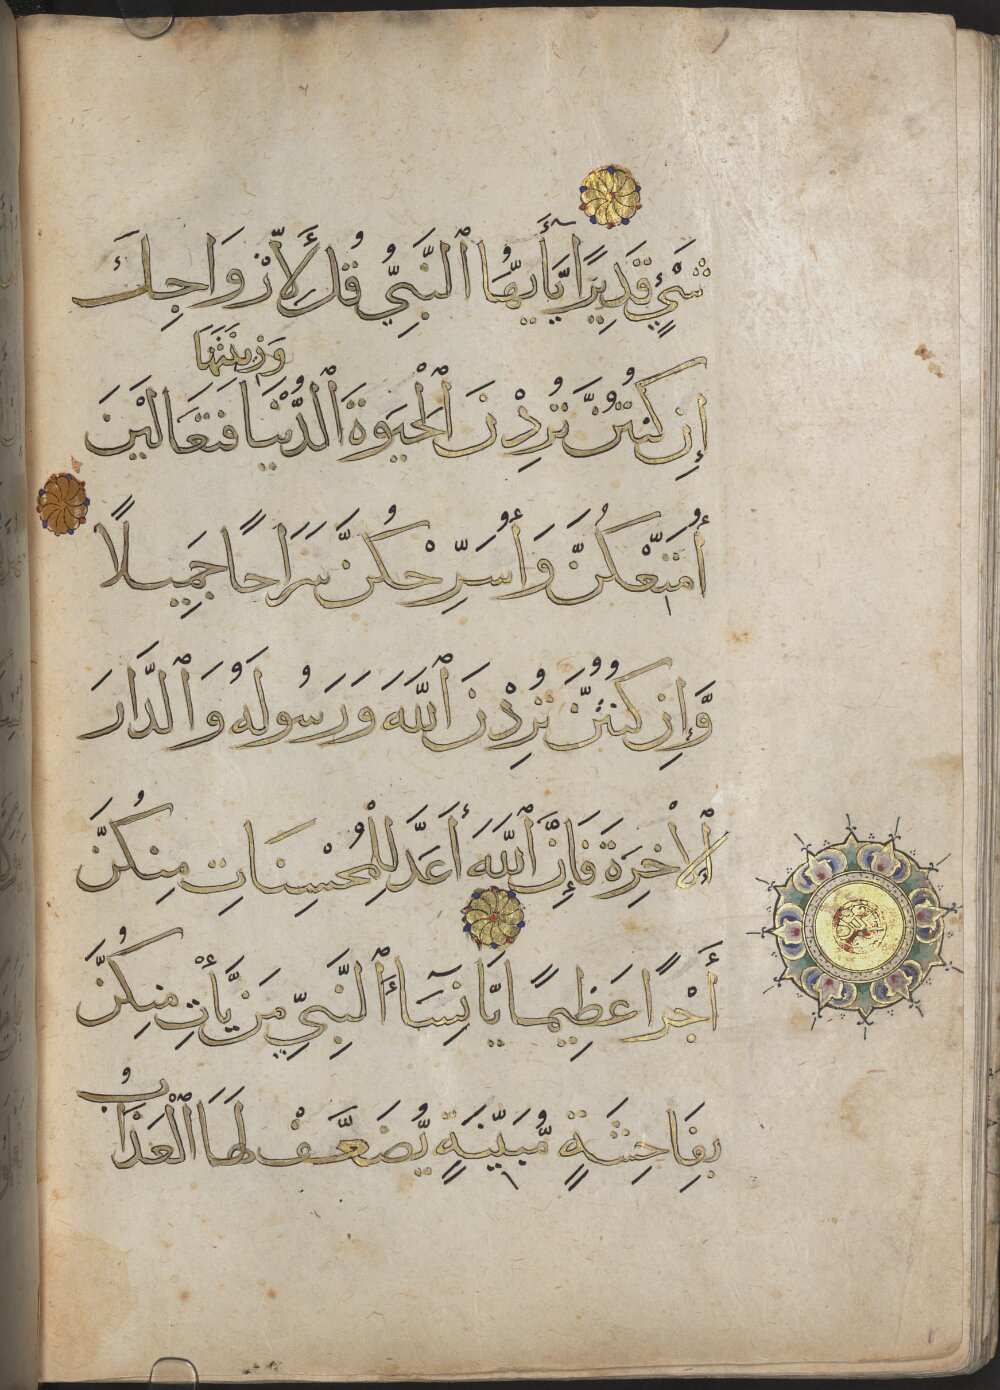 شَيْءٍ قَدِيرًا يَٰٓأَيُّهَا ٱلنَّبِيُّ قُل لِّأَزْوَاجِكَ
وَزِينَتَهَا
إِن كُنتُنَّ تُرِدْنَ ٱلْحَيَوٰةَ ٱلدُّنْيَا فَتَعَالَيْنَ
أُمَتِّعْكُنَّ وَأُسَرِّحْكُنَّ سَرَاحًا جَمِيلًا
وَّإِن كُنتُنَّ تُرِدْنَ ٱللَّهَ وَرَسُولَهُ وَٱلدَّارَ
ٱلْاخِرَةَ فَإِنَّ ٱللَّهَ أَعَدَّ لِلْمُحْسِنَاتِ مِنكُنَّ
أَجْرًا عَظِيمًا يَانِسَآءَ ٱلنَّبِيِّ مَن يَّأْتِ مِنكُنَّ
بِفَاحِشَةٍ مُّبَيِّنَةٍ يُّضَعَّفْ لَهَا ٱلْعَذَابُ